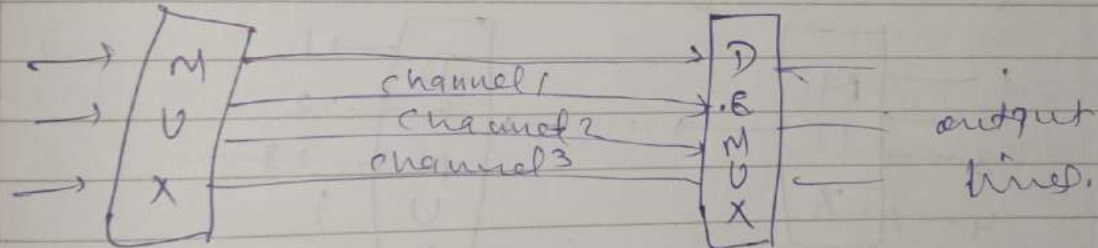 MUX
channel 1
channel 2
channel 3
DEMUX
output
lines.